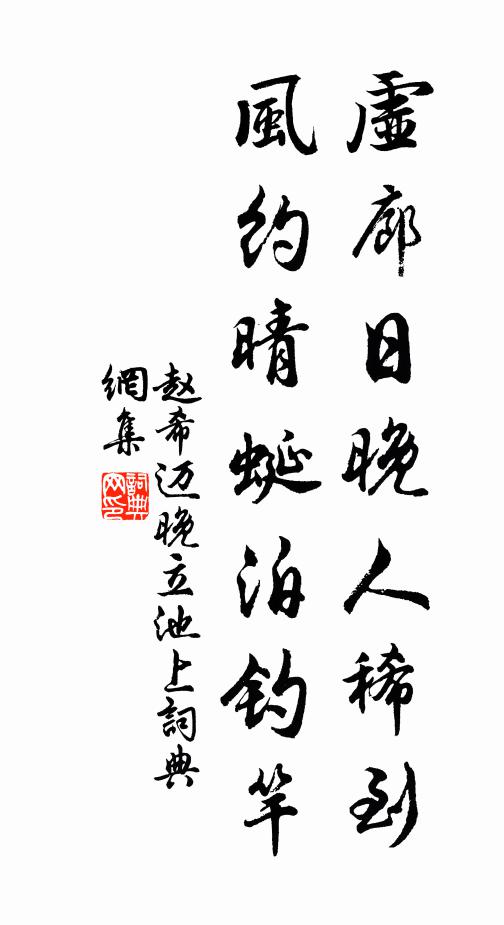 虛廊日晚人稀到
風約晴蜒泊釣竿
赵希迈晚立池上詞典
網集
詞典
网印